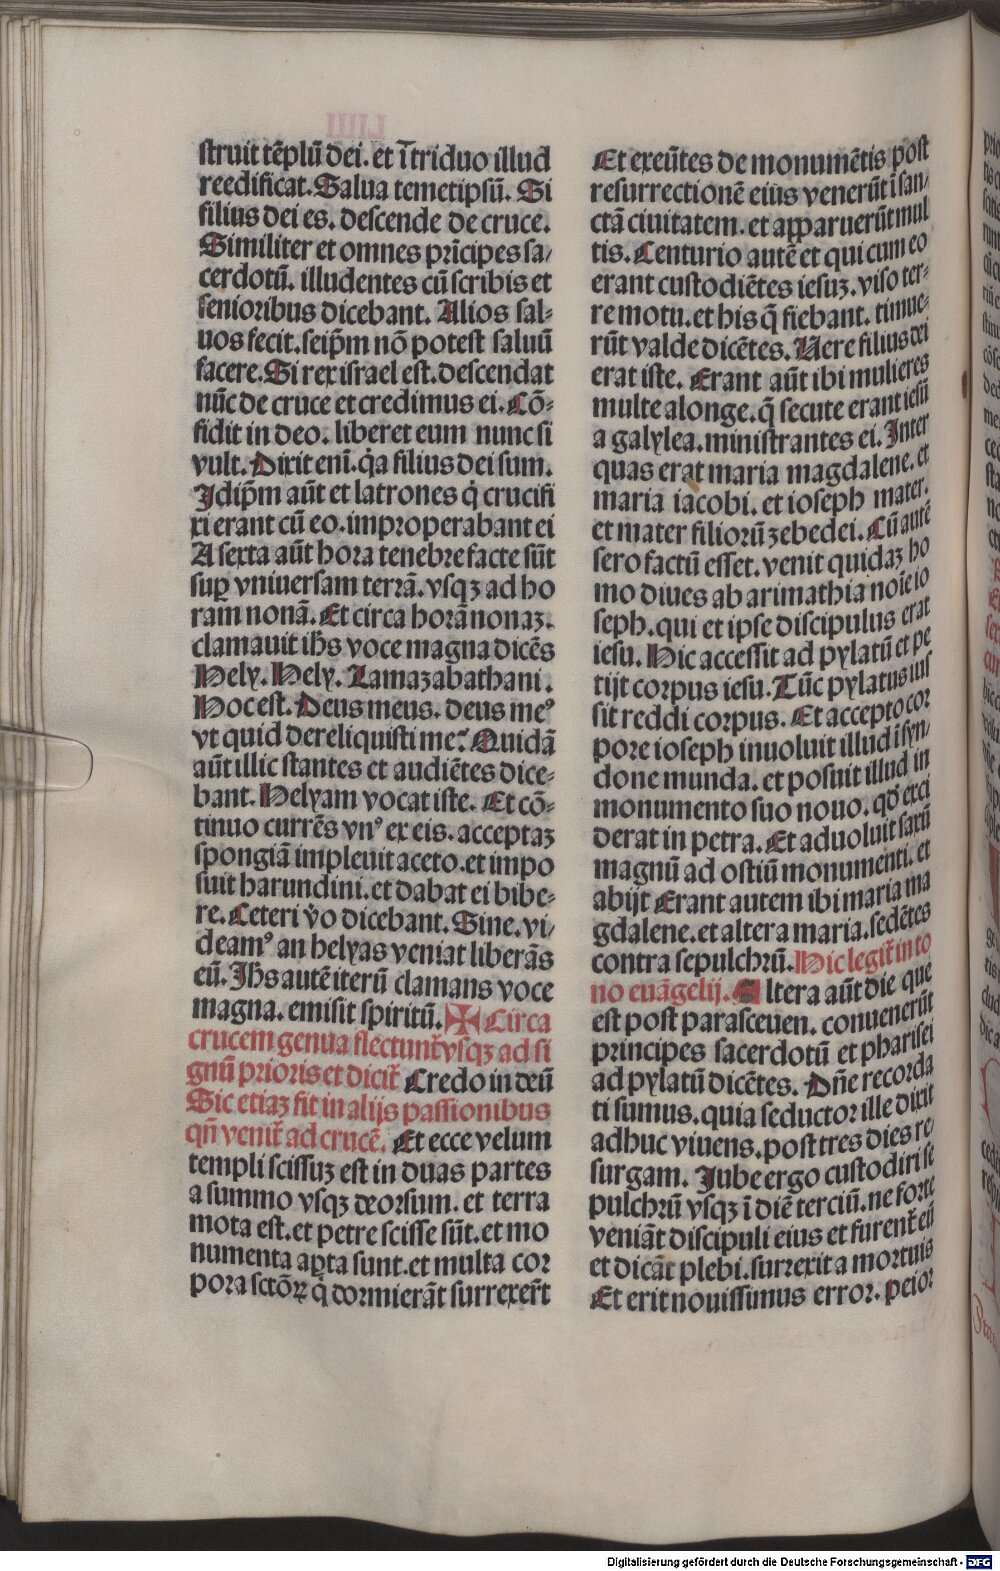 struit tēplū dei. et ītriduo illud
reedificat. Salua temetipsū. Si
filius dei es. descende de cruce.
Similiter et omnes prīcipes sa/
cerdotū. illudentes cū scribis et
senioribus dicebant. Alios sal-
uos fecit. seip̄m nō potest saluū
facere. Si rex israel est. descendat
nūc de cruce et credimus ei. Cō-
fidit in deo. liberet eum nunc si
vult. Dixit enī. q̇a filius dei sum.
Idip̄m aūt et latrones q̇ crucifi
xi erant cū eo. improperabant ei
A sexta aūt hora tenebre facte sūt
suꝑ vniuersam terrā. vsqꝫ ad ho
ram nonā. Et circa horā nonaꝫ.
clamauit ihs̄ voce magna dicēs
Hely. Hely. Lamazabathani.
Hoc est. Deus meus. deus meꝰ
vt quid dereliquisti me? Quidā
aūt illic stantes et audiētes dice-
bant. Helyam vocat iste. Et cō-
tinuo currēs vnꝰ ex eis. acceptaꝫ
spongiā impleuit aceto. et impo
suit harundini. et dabat ei bibe-
re. Ceteri v̊o dicebant. Sine. vi/
deamꝰ an helyas veniat liberās
eū. Ihs̄ autē iterū clamans voce
magna. emisit spiritū. ✠ Circa
crucem genua flectunt̄ vsqꝫ ad si
gnū prioris et dicit̄ Credo in deū
Sic etiaꝫ fit in alijs passionibus
qn̄ venit̄ ad crucē. Et ecce velum
templi scissuꝫ est in duas partes
a summo vsqꝫ deorsum. et terra
mota est. et petre scisse sūt. et mo
numenta aꝑta sunt. et multa cor
pora sctōꝝ q̇ dormierāt surrexer̄t
Et exeūtes de monumētis post
resurrectionē eius venerūt ī san/
ctā ciuitatem. et apparuerūt mul
tis. Centurio autē et qui cum eo
erant custodiētes iesuꝫ. viso ter-
re motu. et his q̄ fiebant. timue-
rūt valde dicētes. Uere filius dei
erat iste. Erant aūt ibi mulieres
multe a longe. q̄ secute erant iesū
a galylea. ministrantes ei. Inter
quas erat maria magdalene. et
maria iacobi. et ioseph mater.
et mater filiorū zebedei. Cū autē
sero factū esset. venit quidaꝫ ho
mo diues ab arimathia noīe io
seph. qui et ipse discipulus erat
iesu. Hic accessit ad pylatū et pe
tijt corpus iesu. Tūc pylatus ius
sit reddi corpus. Et accepto cor
pore ioseph inuoluit illud ī syn/
done munda. et posuit illud in
monumento suo nouo. qd̄ exci
derat in petra. Et aduoluit saxū
magnū ad ostiū monumenti. et
abijt Erant autem ibi maria ma
gdalene. et altera maria. sedētes
contra sepulchrū. Hic legit̄ in to
no euāgelij. Altera aūt die que
est post parasceuen. conuenerūt
principes sacerdotū et pharisei
ad pylatū dicētes. Dn̄e recorda
ti sumus. quia seductor ille dixit
adhuc viuens. post tres dies re
surgam. Iube ergo custodiri se
pulchrū vsqꝫ ī diē terciū. ne forte
veniāt discipuli eius et furent̄ eū
et dicāt plebi. surrexit a mortuis
Et erit nouissimus error. peior
Digitalisierung gefördert durch die Deutsche Forschungsgemeinschaft - DFG